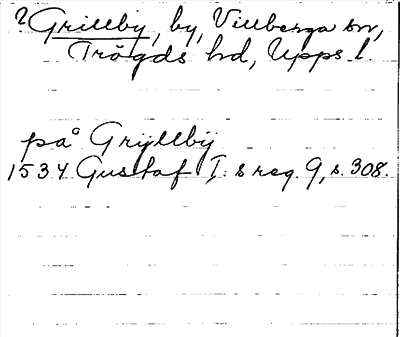 ? Grillby, by, Villberga sn,
Trögds hd, Upps. l.
på Grÿllbÿ
1534 Gustaf I:s reg. 9, s. 308.